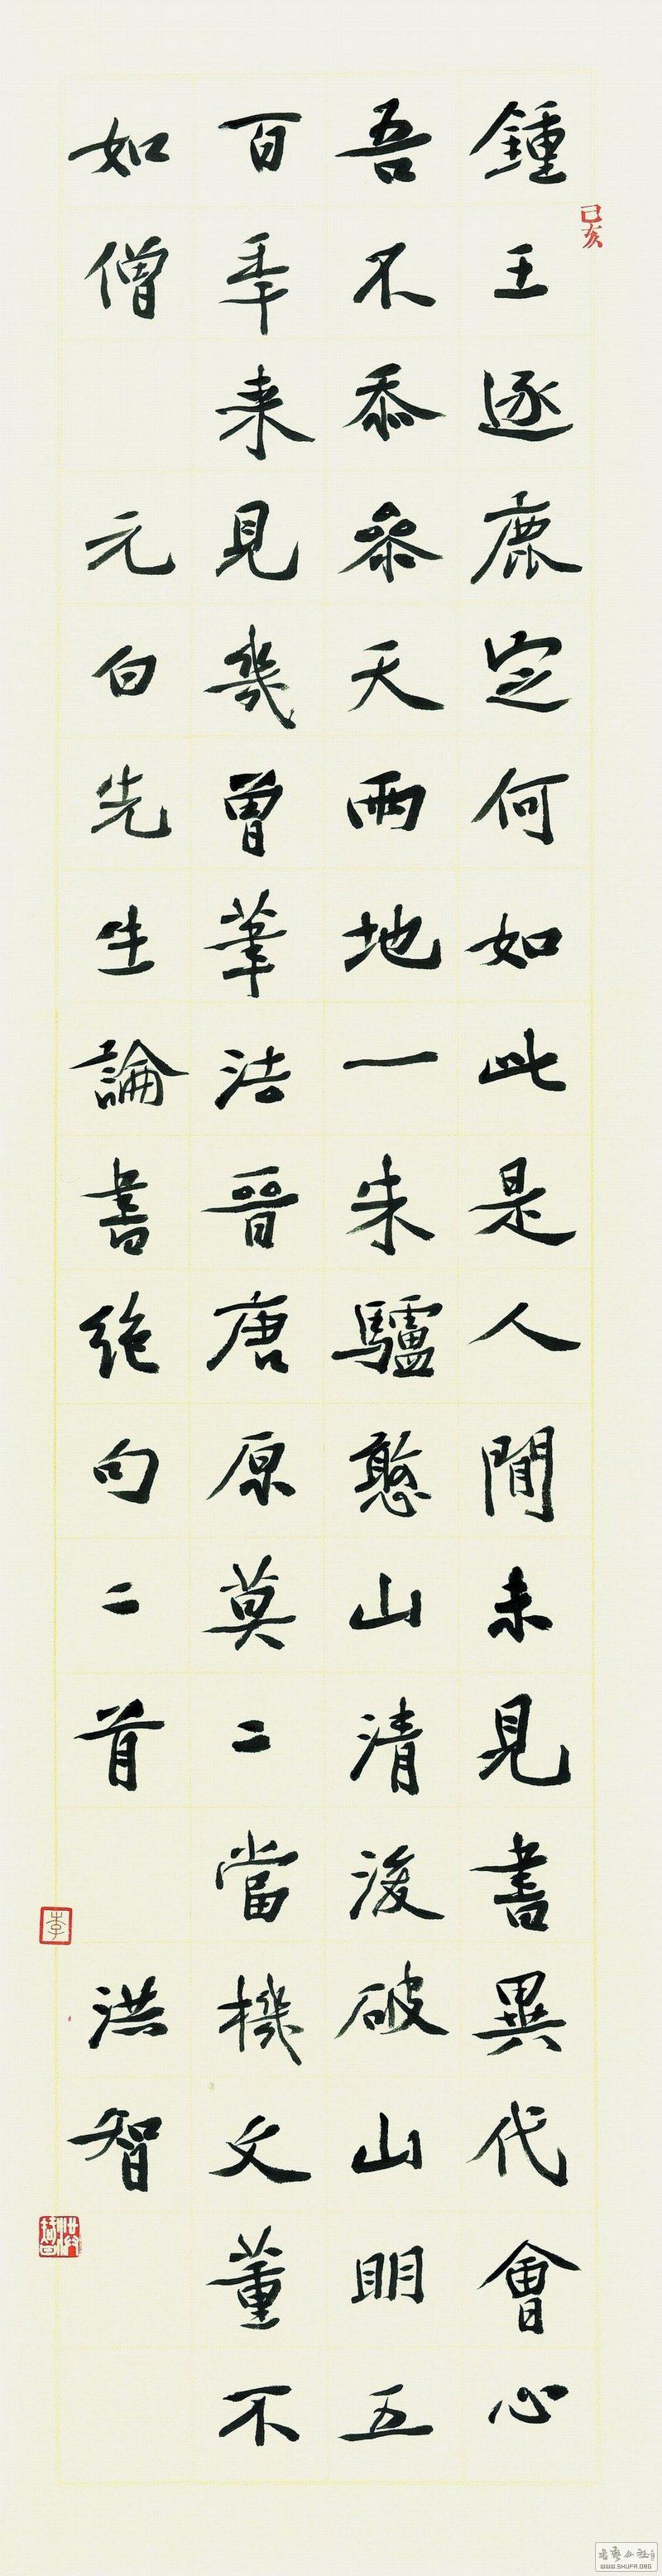 鍾王逐鹿定何如此是人間未見書異代會心
吾不忝參天兩地一朱驢憨山清後破山明五
百年来見幾曾筆法晉唐原莫二當機文董不
如僧 元白先生論書絶句二首 洪智
己亥
李
書藝公社
WWW.SHUFA.ORG